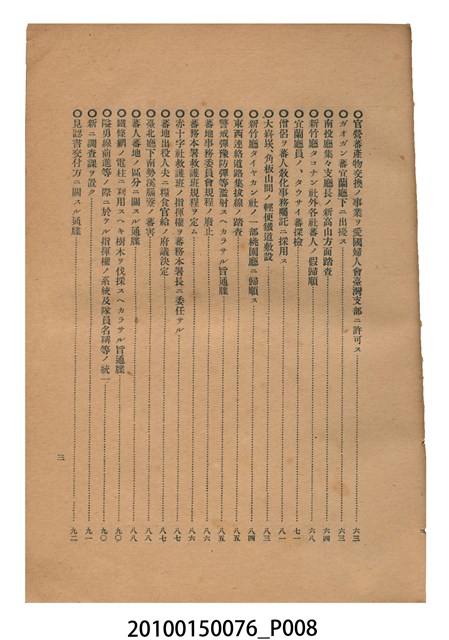 ◉官營蕃產物交換ノ事業ヲ愛國婦人會臺灣支部ニ許可ス……六三
◉ガオガン蕃宜蘭廳下ニ出擾ス……六三
◉南投廳集々支廳長ノ新高山方面踏查……六四
◉新竹廳タコナン社外各社蕃人ノ假歸順……六八
◉宜蘭廳員ノ、タウサイ蕃探檢……七一
◉僧侶ヲ蕃人敎化事務囑託ニ採用ス……八一
◉大嵙崁、角板山間ノ輕便鐵道敷設……八三
◉新竹廳タイヤカン社ノ一部桃園廳ニ歸順ス……八四
◉東西連絡道路集玫線ノ踏查……八五
◉警戒彈豫防彈等濫射スヘカラサル旨通牒……八五
◉蕃地事務委員會規程ノ廢止……八六
◉蕃務本署救護班規程ヲ定ム……八六
◉赤十字社救護班ノ指揮權ヲ蕃務本署長ニ委任サル……八七
◉蕃地出役人夫ニ糧食官給ノ府議決定……八七
◉臺北廳下南勢溪腦寮ノ蕃害……八八
◉蕃人蕃地ノ區分ニ關スル通牒……八八
◉鐵條網ノ電柱ニ利用スヘキ樹木ヲ伐採スヘカラサル旨通牒……九〇
◉隘勇線前進等ノ際ニ於ケル指揮權ノ系統及隊員名稱等ノ統一……九〇
◉新ニ調查課ヲ置ク……九一
◉見認書交付方ニ關スル通牒……九二
三
20100150076_P008